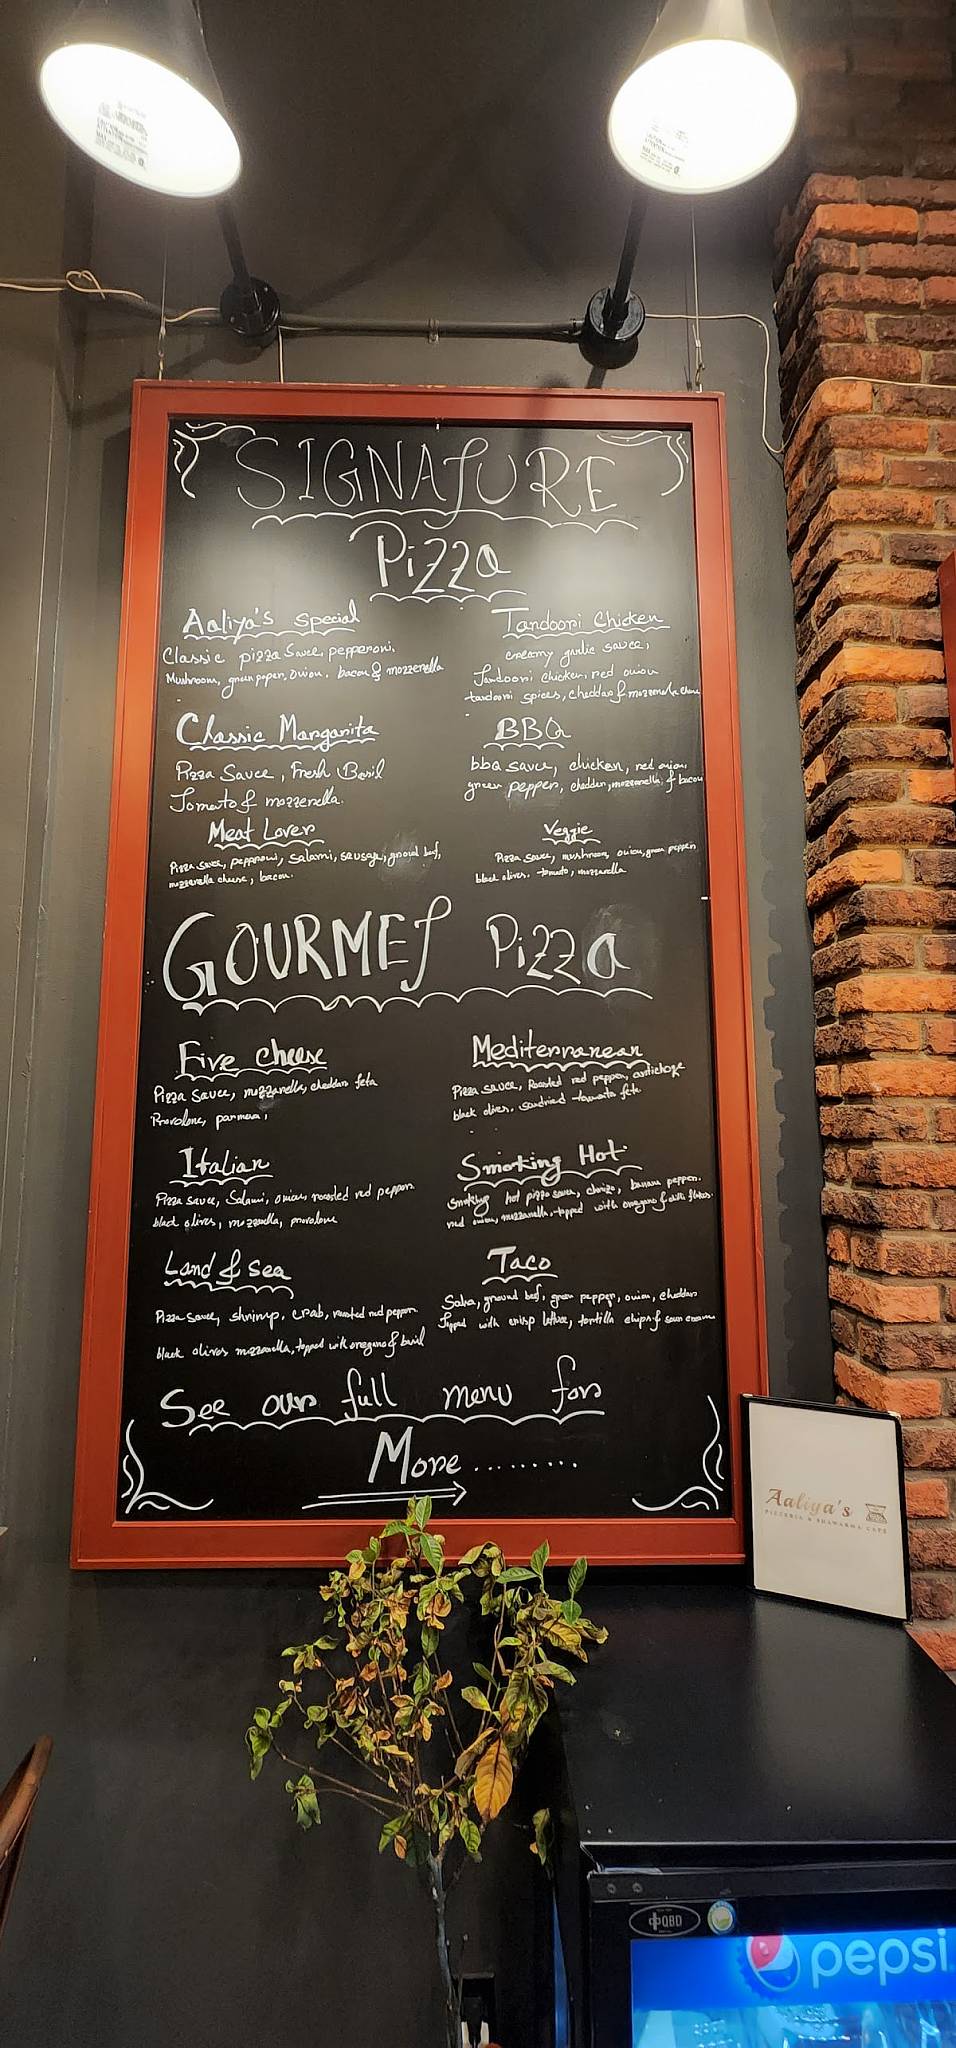 SIGNATURE
Pizza
Aaliya's special
Classic pizza sauce, pepperoni,
Mushroom, green peper, onion, bacon & mozzerella
Tandoori Chicken
creamy garlic sauce,
Tandoori chicken, red onion
tandoori spices, cheddar & mozzerella cheese
Classic Margarita
Pizza Sauce, Fresh Basil
Tomato & mozzerella.
BBQ
bbq sauce, chicken, red onion,
green pepper, cheddar, mozzarella & bacon
Meat Lover
Pizza sauce, pepperoni, salami, sausage, ground beef,
mozzerella cheese, bacon.
Veggie
Pizza sauce, mushroom, onion, green pepper
black olives, tomato, mozzarella
GOURMET Pizza
Five cheese
Pizza sauce, mozzarella, cheddar feta
Provolone,
Mediterranean
Pizza sauce, Roasted red pepper, artichoge
black olives, sundried tomato feta
Italian
Pizza sauce, Salami, onion, roasted red pepper
black olives, mozzarella, provolone
Smoking Hot
Smoking hot pizza sauce, banana pepper,
red onion, mozzarella, topped with oregano & chilli flakes.
Land & sea
Pizza sauce, shrimp, crab, roasted red pepper
black olives mozzarella, topped with oregano & basil
Taco
Salsa, ground beef, green pepper, onion, cheddar
Topped with crisp lettuce, tortilla chips & sour cream
See our full menu for
More.........
Aaliya's
PIZZERIA & SHAWARMA CAFE
QBD
pepsi